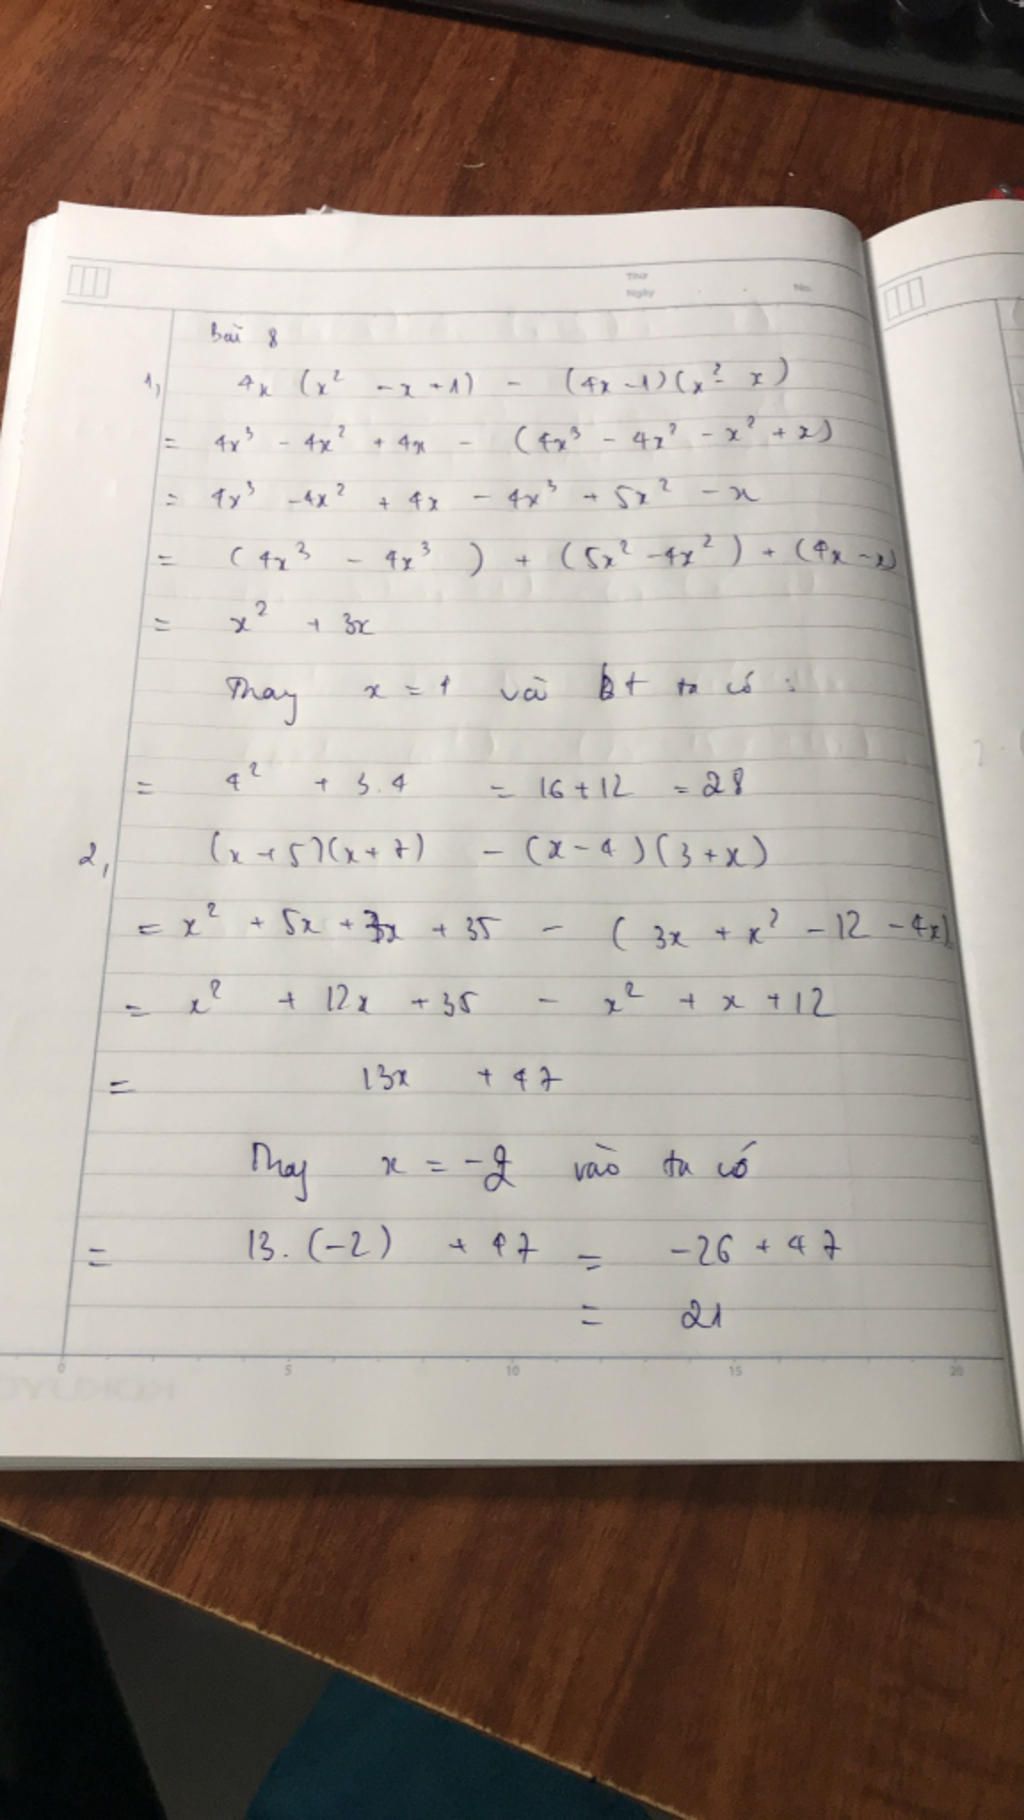 Thứ
Ngày No.
Bài 8
1, 4x (x² - x + 1) - (4x - 1)(x² - x)
= 4x³ - 4x² + 4x - (4x³ - 4x² - x² + x)
= 4x³ - 4x² + 4x - 4x³ + 5x² - x
= (4x³ - 4x³) + (5x² - 4x²) + (4x - x)
= x² + 3x
Thay x = 4 và bt ta có :
= 4² + 3.4 = 16 + 12 = 28
2, (x + 5)(x + 7) - (x - 4)(3 + x)
= x² + 5x + 7x + 35 - (3x + x² - 12 - 4x)
= x² + 12x + 35 - x² + x + 12
= 13x + 47
Thay x = -2 vào ta có
= 13. (-2) + 47 = -26 + 47
= 21
0 5 10 15 20